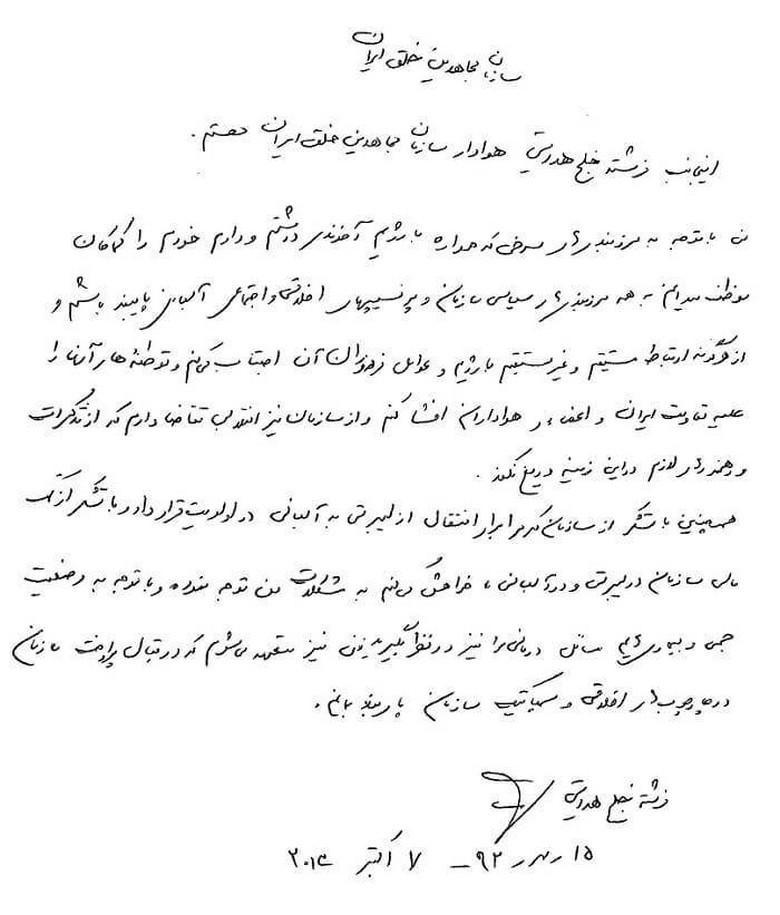 سازمان مجاهدین خلق ایران
اینجانب فرشته خلج هدایتی هوادار سازمان مجاهدین خلق ایران هستم.
من با توجه به مرزبندیهای سرخی که همواره با رژیم آخوندی داشتم و دارم خودم را کماکان
موظف میدانم به همه مرزبندیهای سیاسی سازمان و پرنسیپهای اخلاقی و اجتماعی آلبانی پایبند باشم و
از هرگونه ارتباط مستقیم و غیرمستقیم با رژیم و عوامل و مزدوران آن اجتناب کنم و توطئه‌های آنها را
علیه مقاومت ایران و اعضاء و هواداران افشا کنم و از سازمان نیز تقاضا دارم که از تذکرات
و رهنمودهای لازم در این زمینه دریغ نکند.
همچنین با تشکر از سازمان که مرا برای انتقال از لیبرتی به آلبانی در اولویت قرار داد و با تشکر از کمک
مالی سازمان در لیبرتی و در آلبانی، خواهش میکنم به مشکلات من توجه نموده و با توجه به وضعیت
جسمی و بیماریهایم مسائل درمانی مرا نیز در نظر بگیرید. من نیز متعهد می‌شوم که در قبال پرداخت سازمان
در چارچوبهای اخلاقی و سازمان پایبند بمانم.
فرشته خلج هدایتی
۱۵ مهر ۹۲ – ۷ اکتبر ۲۰۱۳